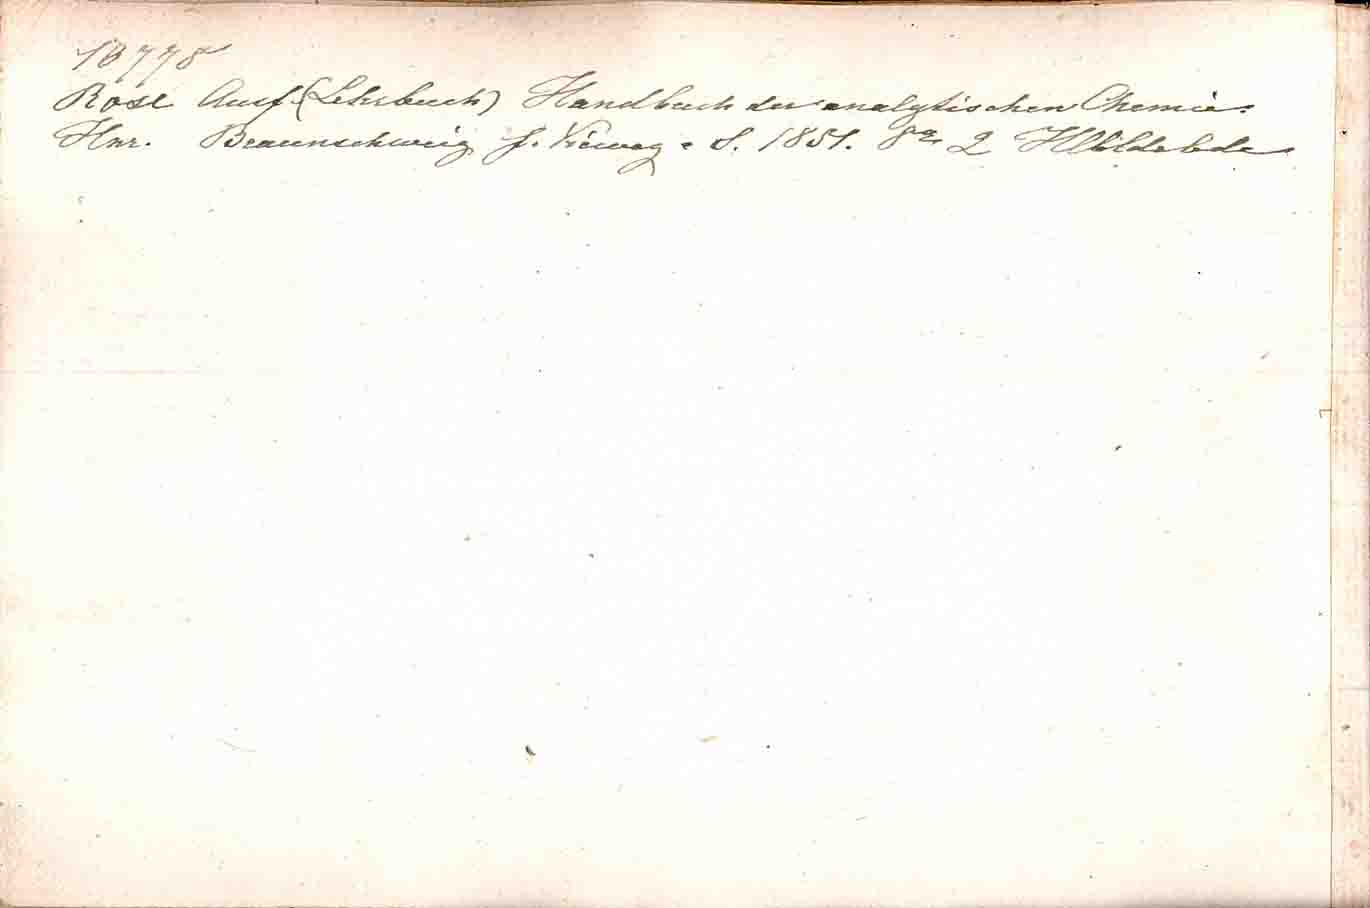 10778
Rose Ausf. (Lehrbuch) Handbuch der analytischen Chemie.
Hnr. Braunschweig f. Vieweg & S. 1851. 8° 2 Hblderbde